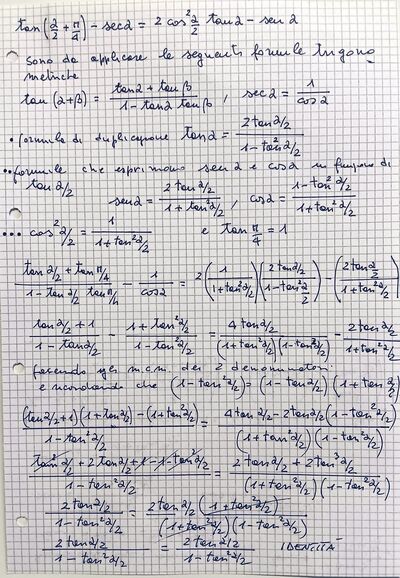 tan(α/2 + π/4) - sec α = 2 cos² α/2 tan α - sen α
sono da applicare le seguenti formule trigono
metriche
tan(α+β) = (tan α + tan β)/(1 - tan α tan β) , sec α = 1/cos α
• formula di duplicazione tan α = (2 tan α/2)/(1 - tan² α/2)
•• formule che esprimono sen α e cos α in funzione di
tan α/2
sen α = (2 tan α/2)/(1 + tan² α/2) , cos α = (1 - tan² α/2)/(1 + tan² α/2)
••• cos² α/2 = 1/(1 + tan² α/2) e tan π/4 = 1
(tan α/2 + tan π/4)/(1 - tan α/2 tan π/4) - 1/cos α = 2 (1/(1 + tan² α/2)) ((2 tan α/2)/(1 - tan² α/2)) - ((2 tan α/2)/(1 + tan² α/2))
(tan α/2 + 1)/(1 - tan α/2) - (1 + tan² α/2)/(1 - tan² α/2) = (4 tan α/2)/((1 + tan² α/2)(1 - tan² α/2)) - (2 tan α/2)/(1 + tan² α/2)
facendo gli m.c.m. dei 2 denominatori
e ricordando che (1 - tan² α/2) = (1 - tan α/2)(1 + tan α/2)
((tan α/2 + 1)(1 + tan α/2) - (1 + tan² α/2))/(1 - tan² α/2) = (4 tan α/2 - 2 tan α/2 (1 - tan² α/2))/((1 + tan² α/2)(1 - tan² α/2))
(tan² α/2 + 2 tan α/2 + 1 - 1 - tan² α/2)/(1 - tan² α/2) = (2 tan α/2 + 2 tan³ α/2)/((1 + tan² α/2)(1 - tan² α/2))
(2 tan α/2)/(1 - tan² α/2) = (2 tan α/2 (1 + tan² α/2))/((1 + tan² α/2)(1 - tan² α/2))
(2 tan α/2)/(1 - tan² α/2) = (2 tan α/2)/(1 - tan² α/2) IDENTITÀ